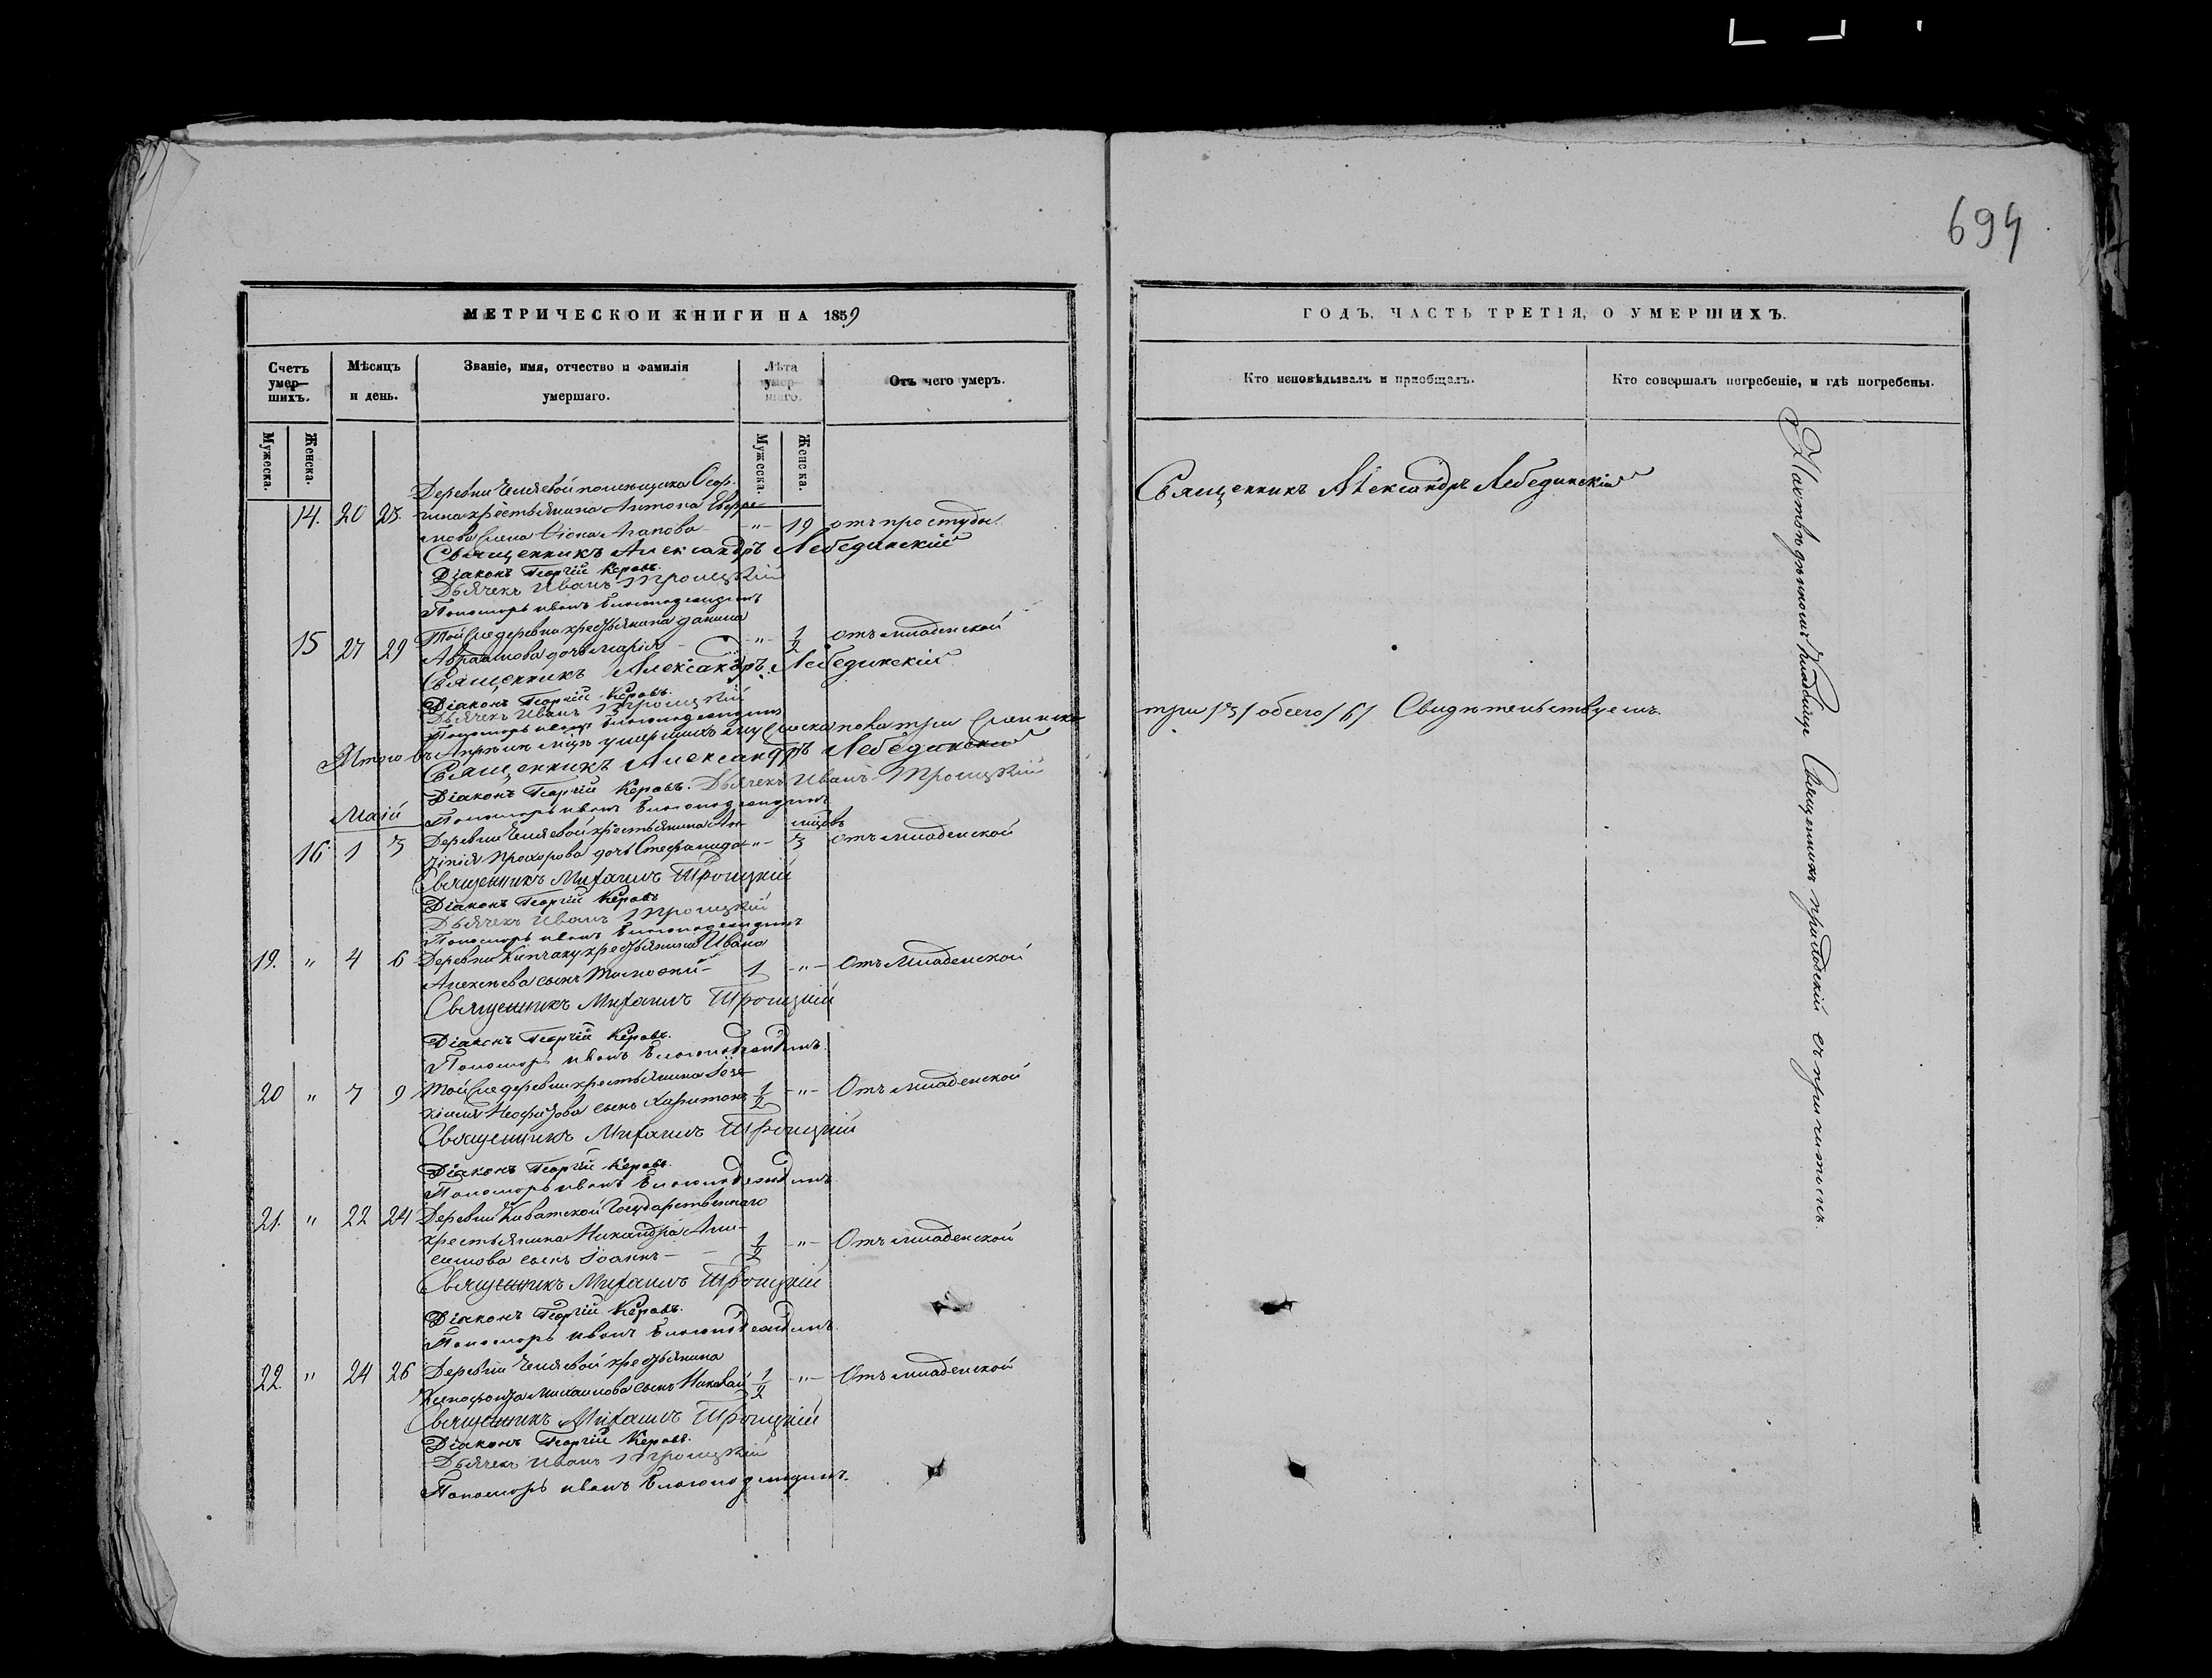 694
МЕТРИЧЕСКОЙ КНИГИ НА 1859
ГОДЪ, ЧАСТЬ ТРЕТІЯ, О УМЕРШИХЪ.
Счетъ умер—шихъ.
Мѣсяцъ и день.
Званіе, имя, отчество и фамилія умершаго.
Лѣта умер—шаго.
Отъ чего умеръ.
Кто исповѣдывалъ и пріобщалъ.
Кто совершалъ погребеніе, и гдѣ погребены.
Мужеска.
Женска.
Мужеска.
Женска.
Деревни помѣщика
14. 20 23. крестьянина Антона
Агапова " 19 отъ простуды.
Священникъ Александръ Лебединскій
Священникъ Александръ Лебединскій
Діаконъ Георгій Керовъ.
Дьячекъ Иванъ Троицкій
Пономарь иванъ
15 27 29 Той же деревни крестьянина данила
Авраамова дочь марія " 1/2 отъ младенской
Священникъ Александръ Лебединскій
Діаконъ Георгій Керовъ.
Дьячекъ Иванъ Троицкій
Пономарь иванъ
Итого въ Апрѣлѣ мцѣ умершихъ мужеска пола три женска
три /3/ обоего /6/ Свидѣтельствуемъ.
Священникъ Александръ Лебединскій
Діаконъ Георгій Керовъ. Дьячекъ Иванъ Троицкій
Маій Пономарь иванъ
Деревни крестьянина мцовъ
16. 1 3 Прохорова дочь Стефанида " 3 отъ младенской
Священникъ Михаилъ Троицкій
Діаконъ Георгій Керовъ
Дьячекъ Иванъ Троицкій
Пономарь иванъ
19. " 4 6 Деревни крестьянина Ивана
Алексѣева сынъ Тимофей 1 " Отъ Младенской
Священникъ Михаилъ Троицкій
Діаконъ Георгій Керовъ.
Пономарь иванъ
20 " 7 9 Той же деревни крестьянина Іоа-
кима сынъ Харитонъ 1/2 " Отъ младенской
Священникъ Михаилъ Троицкій
Діаконъ Георгій Керовъ.
Пономарь иванъ
21. " 22 24 Деревни Киватской Государственнаго
крестьянина Никандра Ани-
симова сынъ Іоаннъ 1/2 " Отъ младенской
Священникъ Михаилъ Троицкій
Діаконъ Георгій Керовъ.
Пономарь иванъ
22. " 24 26 Деревни крестьянина
Ксенофонта Михаилова сынъ Николай 1/2 " Отъ младенской
Священникъ Михаилъ Троицкій
Діаконъ Георгій Керовъ.
Дьячекъ Иванъ Троицкій
Пономарь иванъ
кладбищѣ Священникъ приходскій съ причитомъ.